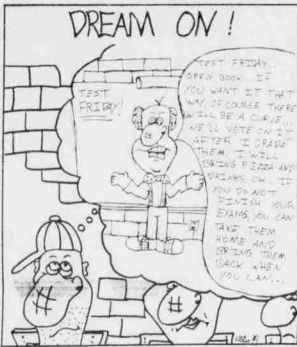 DREAM ON!
TEST
FRIDAY!
TEST FRIDAY...
OPEN BOOK... IF
YOU WANT IT THAT
WAY. OF COURSE THERE
WILL BE A CURVE...
WE'LL VOTE ON IT
AFTER I GRADE
THEM. I WILL
BRING PIZZA AND
DRINKS. OH.. IF
YOU DO NOT
FINISH YOUR
EXAMS, YOU CAN
TAKE THEM
HOME AND
BRING THEM
BACK WHEN
YOU CAN...